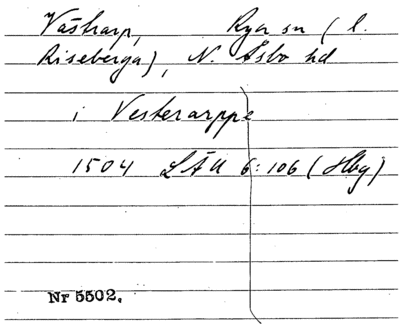 Västrarp, Rya sn ( l.
Riseberga), N. Åsbo hd
i Vesterarppe
1504 LÄU 6:106 (Hbg)
Nr 5502.